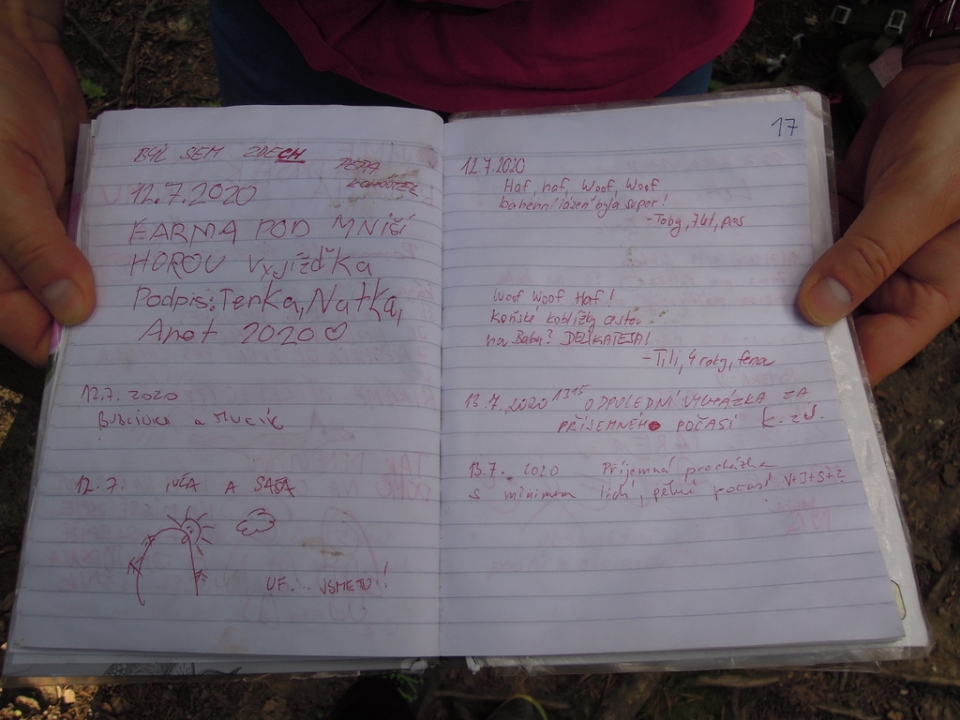 BYL SEM ZDECH
PEPA
12.7.2020
FARMA POD MNIŠÍ
HOROU vyjížďka
Podpis: Terka, Natka,
Anet 2020 ♡
12.7. 2020
a
12.7. A SAŠA
UF.... JSME TU!
17
12.7.2020
Haf, haf, Woof, Woof,
bahenní lázeň byla super!
- Toby, 7 let, pes
Woof Woof Haf!
Koňské koblížky cestou
na Babu? DELIKATESA!
- Tili, 4 roky, fena
13.7.2020 13¹⁵ ODPOLEDNÍ VYCHÁZKA ZA
PŘÍJEMNÉHO POČASÍ
13.7. 2020 Příjemná procházka
s minimem lidí, pěkné počasí V+J+S+Z